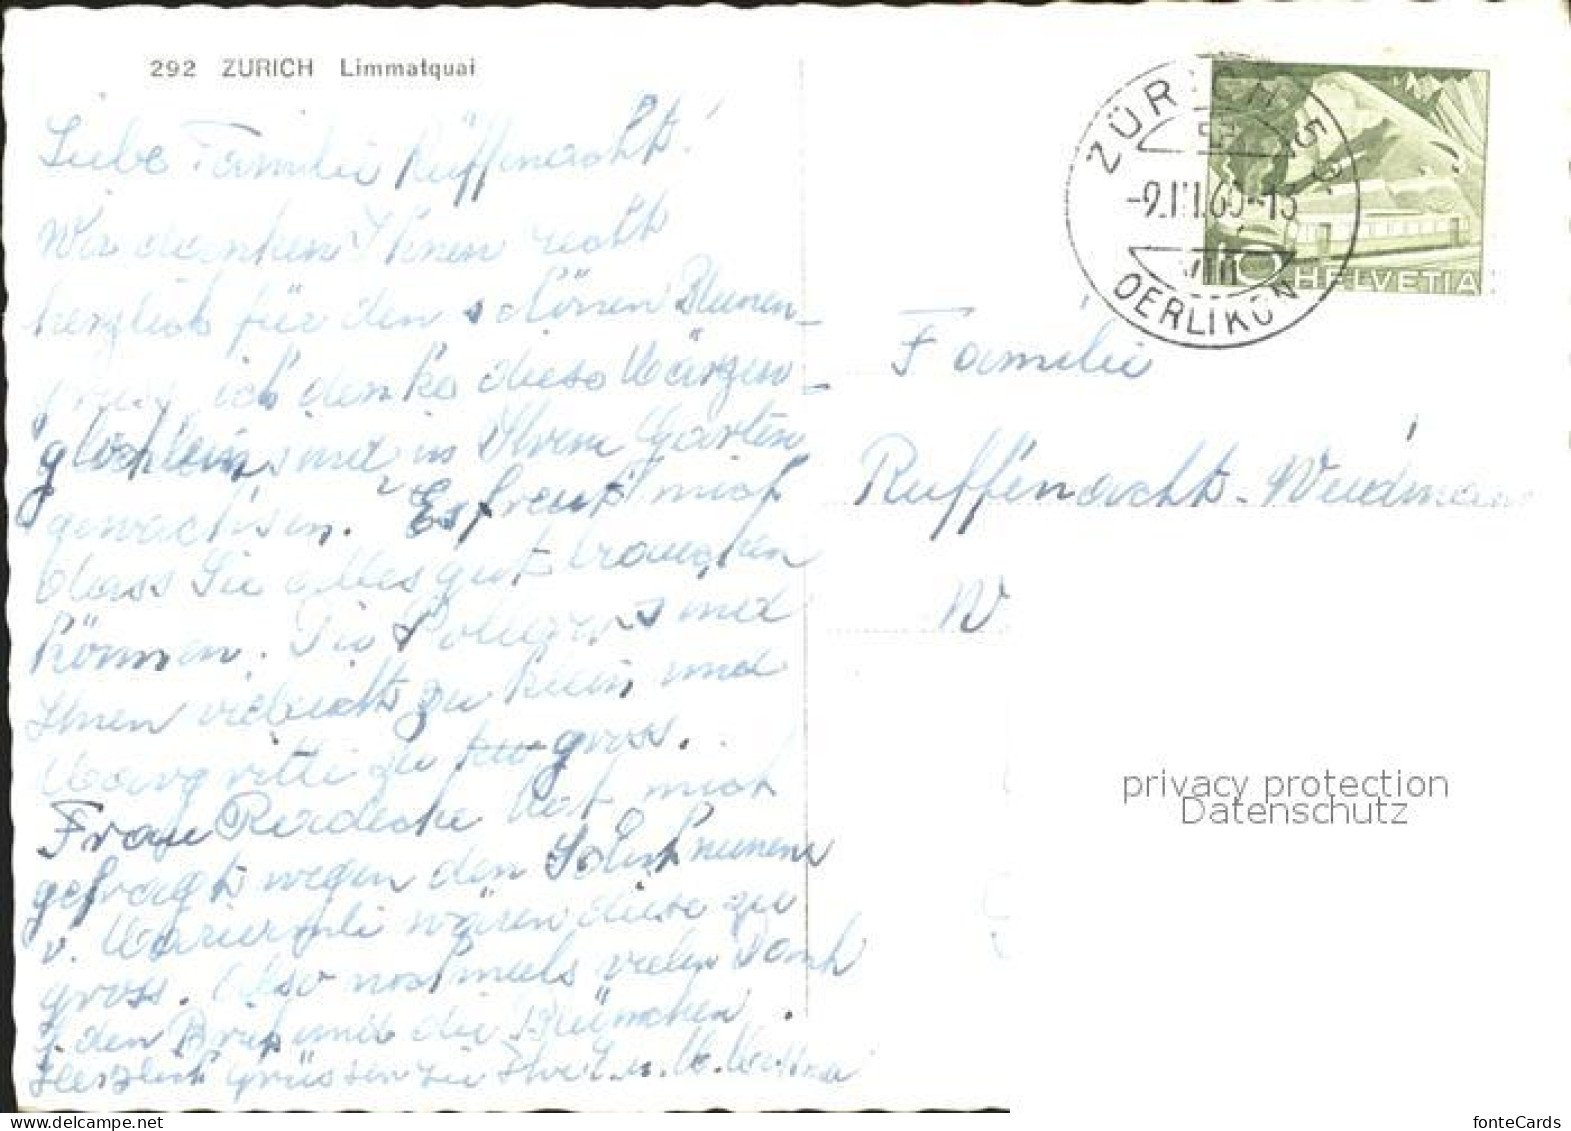 292 ZÜRICH Limmatquai
Liebe Familie Rüffenacht!
Wir danken Ihnen recht
herzlich für den schönen Blumen-
gruss, ich denke diese Märzen-
glöcklein sind in Ihrem Garten
gewachsen. Es freut mich
dass Sie alles gut brauchen
können. Die Pullovers sind
Ihnen vielleicht zu klein und
Margritli zu gross.
Frau hat mich
gefragt wegen den Schuhnummern
v. wären diese zu
gross. Also nochmals vielen Dank
f. den Brief und die Blümchen.
Herzlich grüssen Sie Ihre E. u. M.
ZÜRICH 50
-9.III.60-15
VIII
OERLIKON
10 HELVETIA
Familie
Rüffenacht-Weidmann
W
privacy protection
Datenschutz
fonteCards